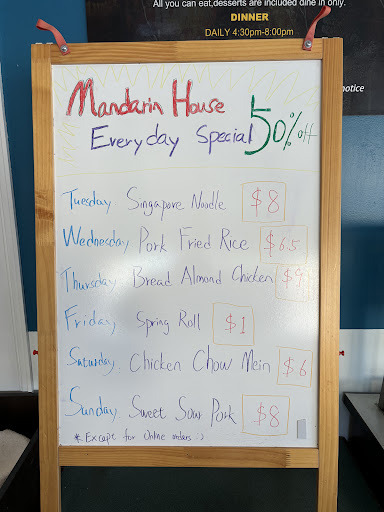 All you can eat,desserts are included dine in only.
DINNER
DAILY 4:30pm-8:00pm
notice
Mandarin House
Everyday Special 50% off
Tuesday Singapore Noodle $8
Wednesday Pork Fried Rice $6.5
Thursday Bread Almond Chicken $9
Friday Spring Roll $1
Saturday. Chicken Chow Mein $6
Sunday Sweet Sour Pork $8
* Except for Online orders :)